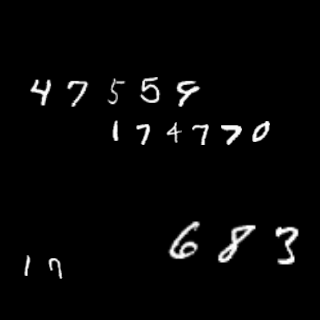 47559
174770
683
17